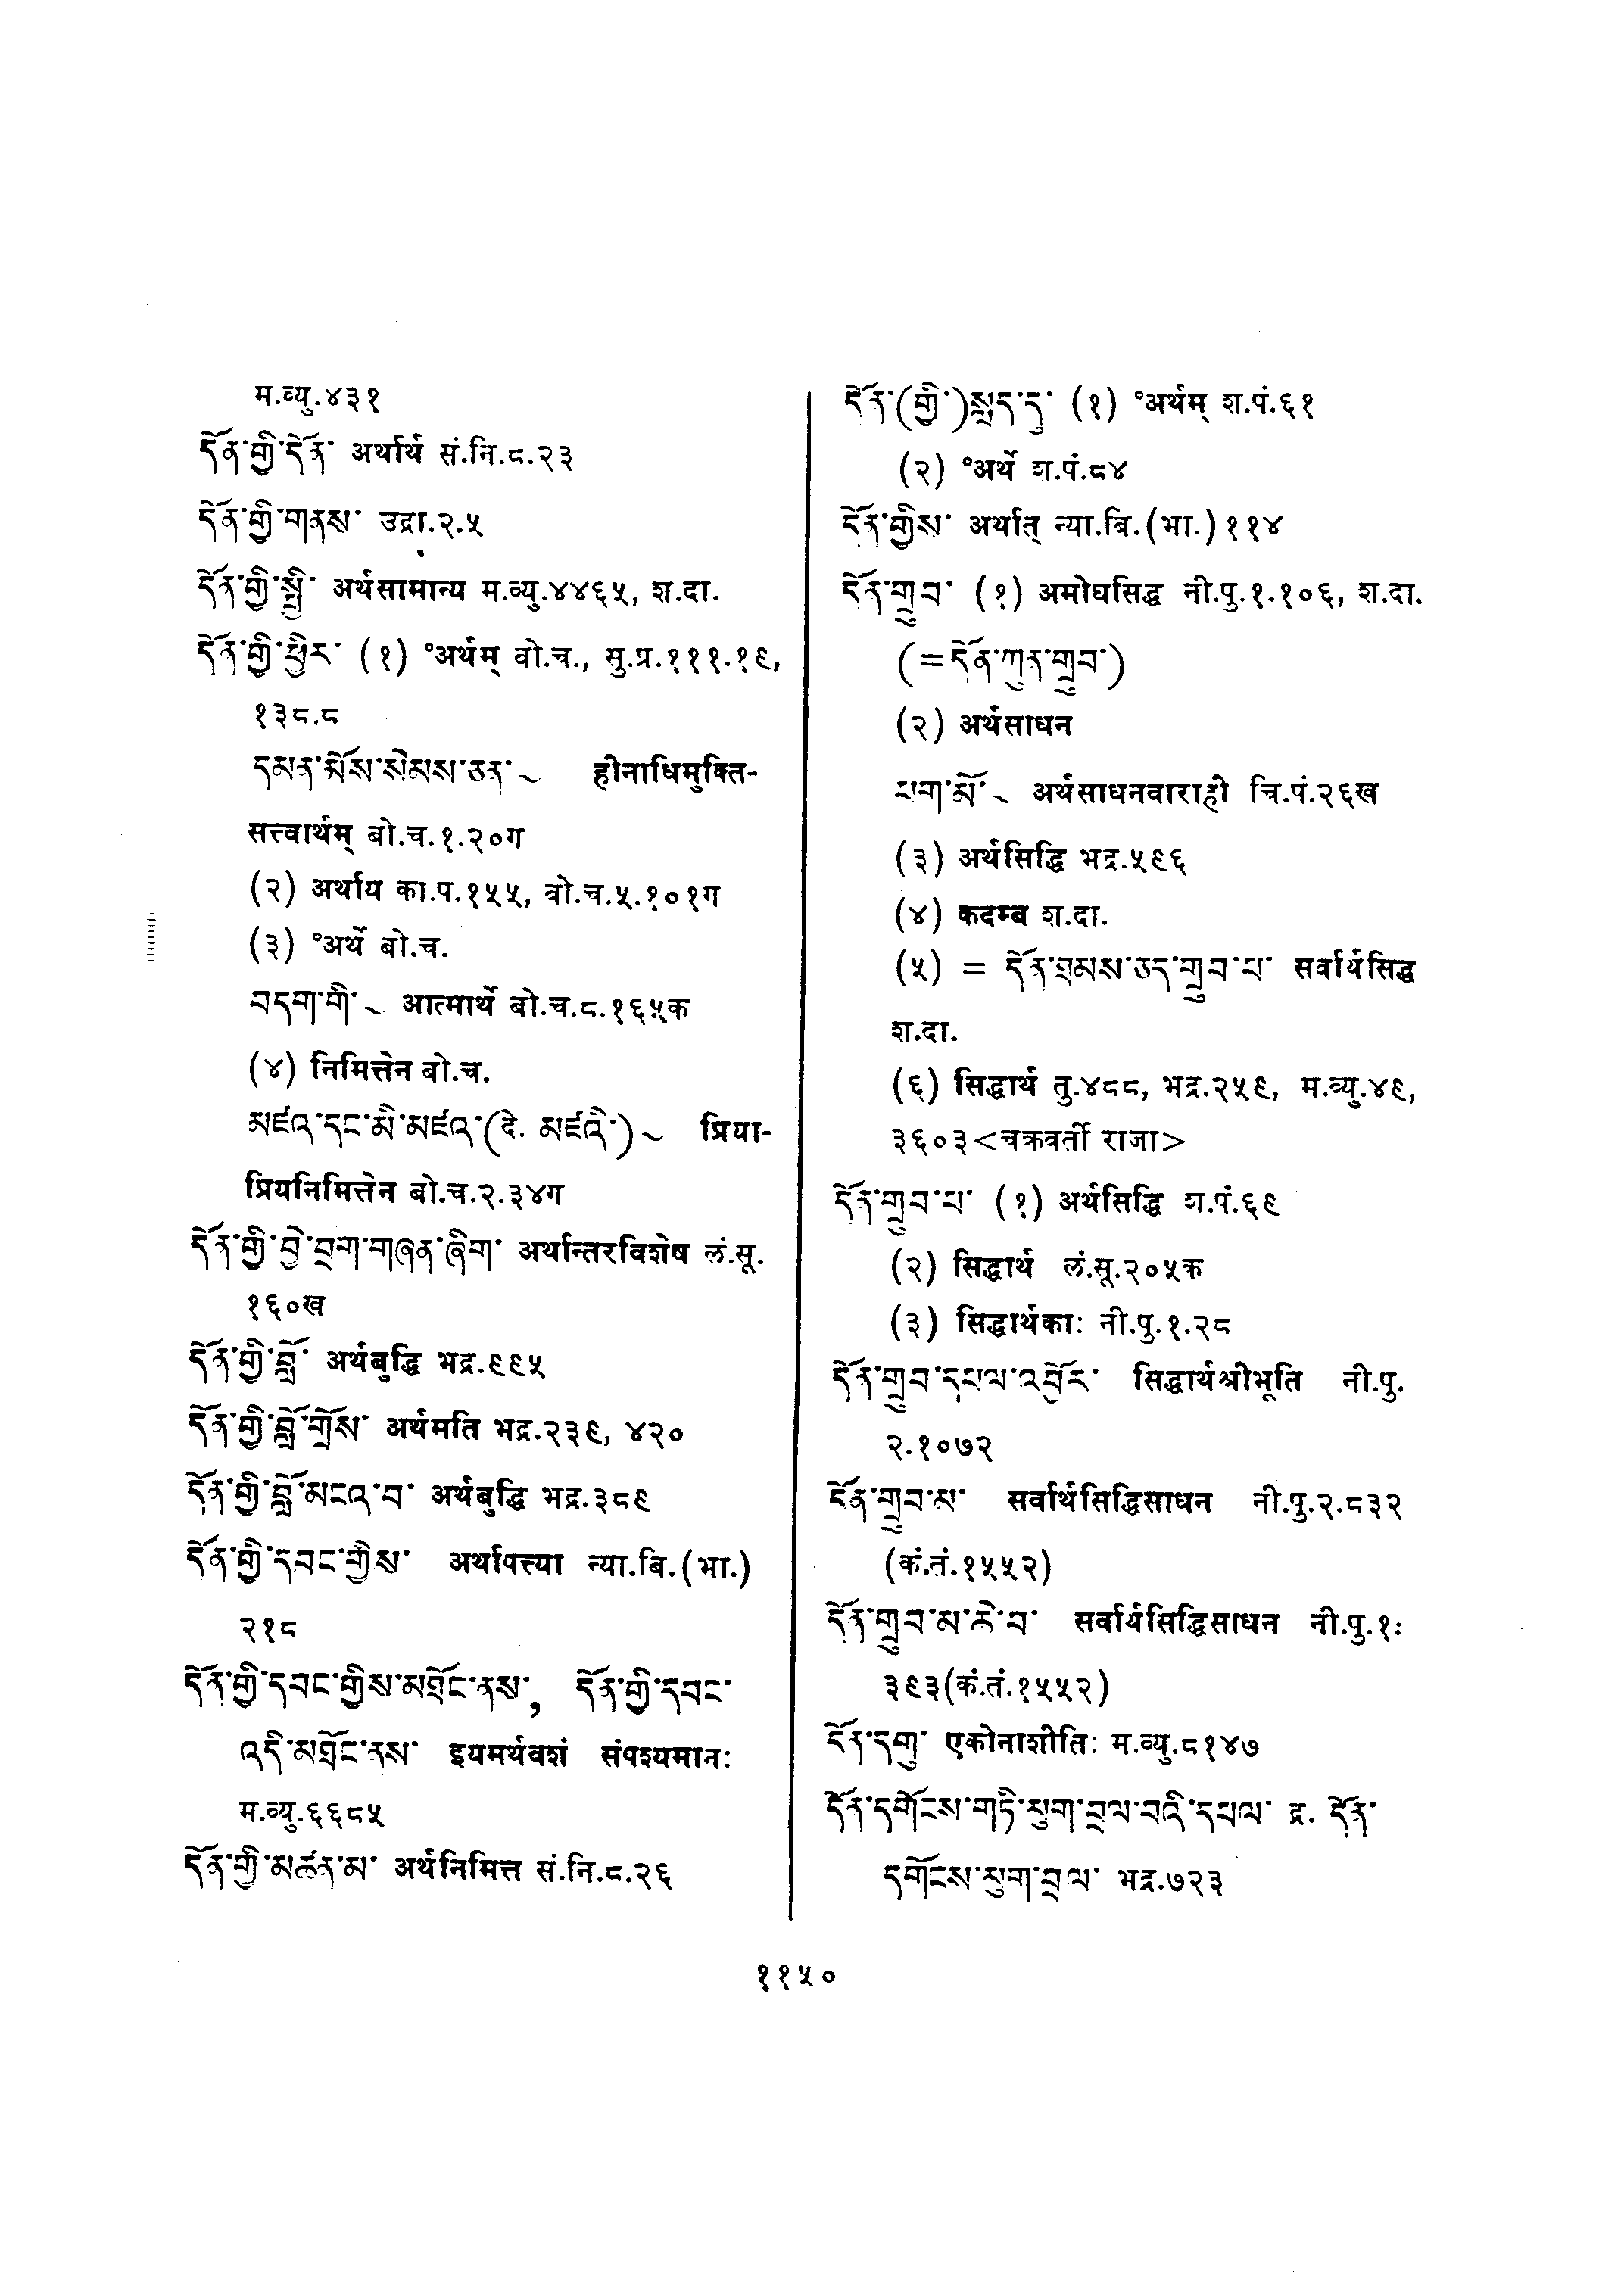 म.व्यु.४३१
དོན་གྱི་དོན་ अर्थार्थ सं.नि.८.२३
དོན་གྱི་གནས་ उद्रा.२.५
དོན་གྱི་སྤྱི་ अर्थसामान्य म.व्यु.४४६५, श.दा.
དོན་གྱི་ཕྱིར་ (१) °अर्थम् बो.च., सु.प्र.१११.१९,
१३८.८
དམན་མོས་སེམས་ཅན་~ हीनाधिमुक्ति-
सत्त्वार्थम् बो.च.१.२०ग
(२) अर्थाय का.प.१५५, बो.च.५.१०१ग
(३) °अर्थे बो.च.
བདག་གི་~ आत्मार्थे बो.च.८.१६५क
(४) निमित्तेन बो.च.
མཛའ་དང་མི་མཛའ་(दे. མཛའི་)~ प्रिया-
प्रियनिमित्तेन बो.च.२.३४ग
དོན་གྱི་བྱེ་བྲག་གཞན་ཞིག་ अर्थान्तरविशेष लं.सू.
१६०ख
དོན་གྱི་བློ་ अर्थबुद्धि भद्र.९९५
དོན་གྱི་བློ་གྲོས་ अर्थमति भद्र.२३९, ४२०
དོན་གྱི་བློ་མངའ་བ་ अर्थबुद्धि भद्र.३८९
དོན་གྱི་དབང་གྱིས་ अर्थापत्त्या न्या.बि.(भा.)
२१८
དོན་གྱི་དབང་གྱིས་མཐོང་ནས་, དོན་གྱི་དབང་
འདི་མཐོང་ནས་ इयमर्थवशं संपश्यमानः
म.व्यु.६६८५
དོན་གྱི་མཚན་མ་ अर्थनिमित्त सं.नि.८.२६
དོན་(གྱི་)སླད་དུ་ (१) °अर्थम् श.पं.६१
(२) °अर्थे श.पं.८४
དོན་གྱིས་ अर्थात् न्या.बि.(भा.)११४
དོན་གྲུབ་ (१) अमोघसिद्ध नी.पु.१.१०६, श.दा.
(=དོན་ཀུན་གྲུབ་)
(२) अर्थसाधन
ཕག་མོ་~ अर्थसाधनवाराही चि.पं.२६ख
(३) अर्थसिद्धि भद्र.५९६
(४) कदम्ब श.दा.
(५) = དོན་ཐམས་ཅད་གྲུབ་པ་ सर्वार्थसिद्ध
श.दा.
(६) सिद्धार्थ तु.४८८, भद्र.२५९, म.व्यु.४९,
३६०३<चक्रवर्ती राजा>
དོན་གྲུབ་པ་ (१) अर्थसिद्धि श.पं.६९
(२) सिद्धार्थ लं.सू.२०५क
(३) सिद्धार्थकाः नी.पु.१.२८
དོན་གྲུབ་དཔལ་འབྱོར་ सिद्धार्थश्रीभूति नी.पु.
२.१०७२
དོན་གྲུབ་མ་ सर्वार्थसिद्धिसाधन नी.पु.२.८३२
(कं.तं.१५५२)
དོན་གྲུབ་མ་རེ་བ་ सर्वार्थसिद्धिसाधन नी.पु.१ः
३९३(कं.तं.१५५२)
དོན་དགུ་ एकोनाशीतिः म.व्यु.८१४७
དོན་དགོངས་གཏི་མུག་བྲལ་བའི་དཔལ་ द्र. དོན་
དགོངས་མུག་བྲལ་ भद्र.७२३
११५०